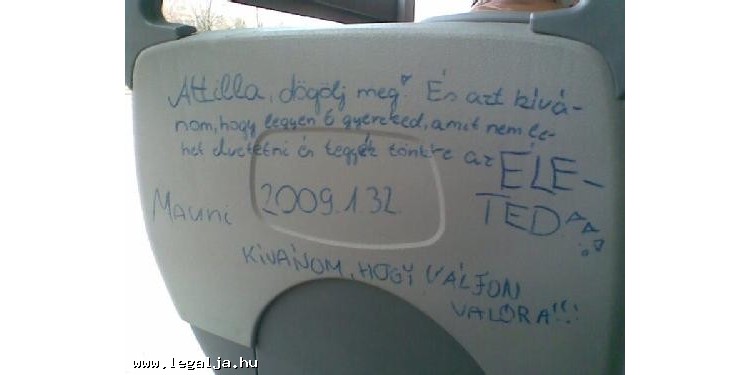 Attilla, dögölj meg! És azt kívá-
nom, hogy legyen 6 gyereked, amit nem le-
het elvetetni és tegyék tönkre az ÉLE-
TED
Mauni 2009.1 32.
KÍVÁNOM, HOGY VÁLJON
VALÓRA!!!
www.legalja.hu